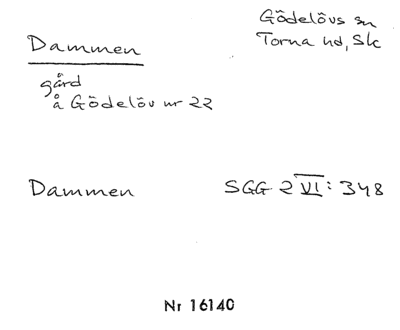 Gödelövs sn
Torna hd, Sk
Dammen
gård
å Gödelöv nr 22
Dammen SGG 2 VI: 348
Nr 16140